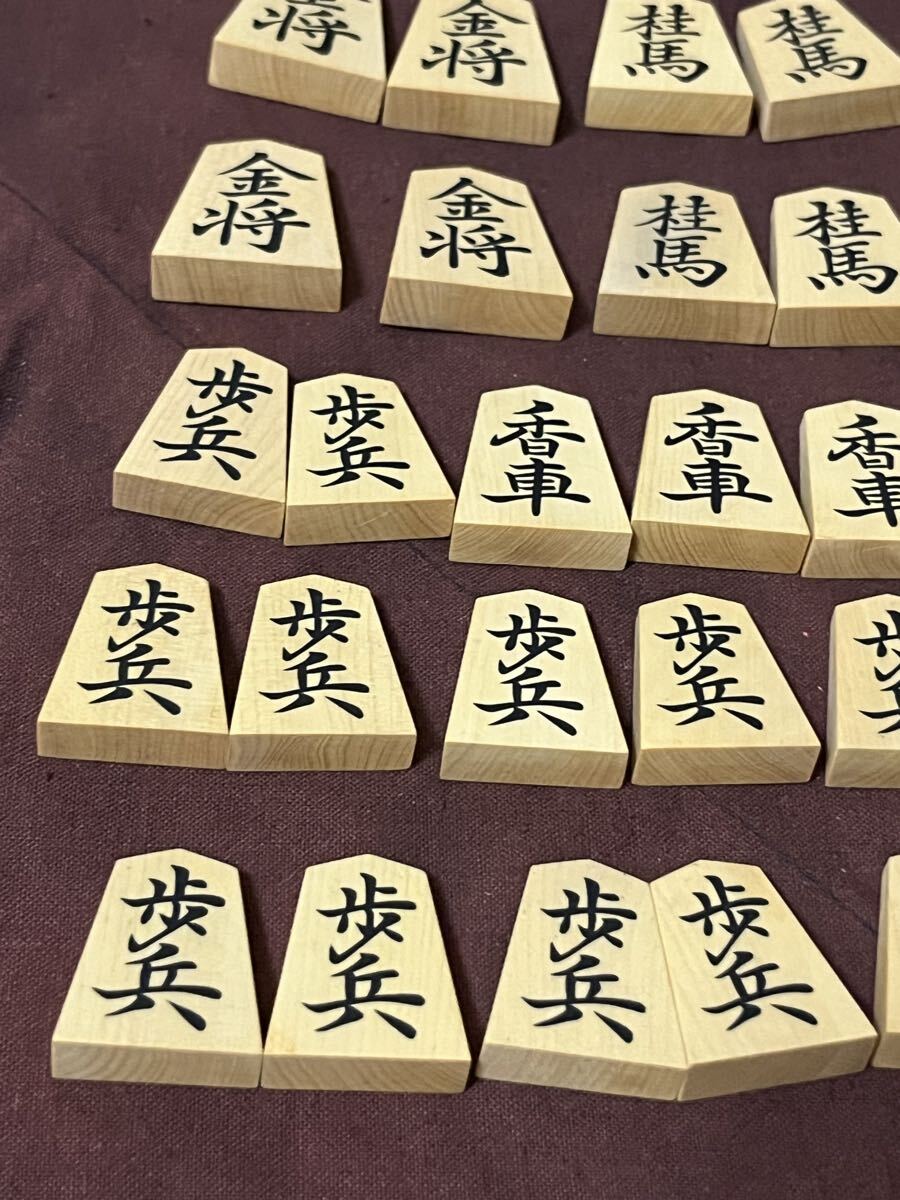 金将 金将 桂馬 桂馬
金将 金将 桂馬 桂馬
歩兵 歩兵 香車 香車 香車
歩兵 歩兵 歩兵 歩兵 歩兵
歩兵 歩兵 歩兵 歩兵